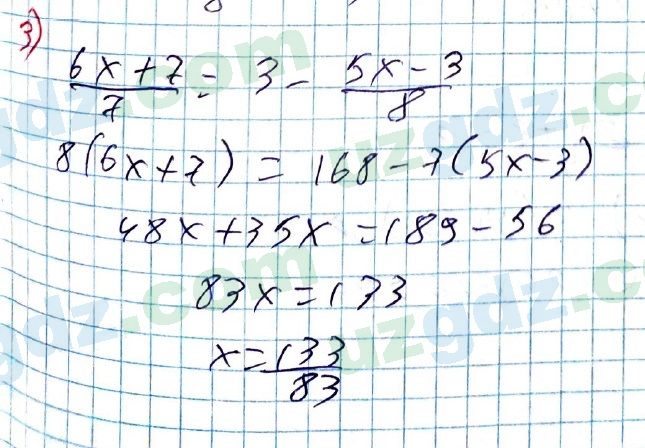 3)
(6x+7)/7 = 3 - (5x-3)/8
8(6x+7) = 168-7(5x-3)
48x+35x=189-56
83x=133
x=133/83
uzgdz.com